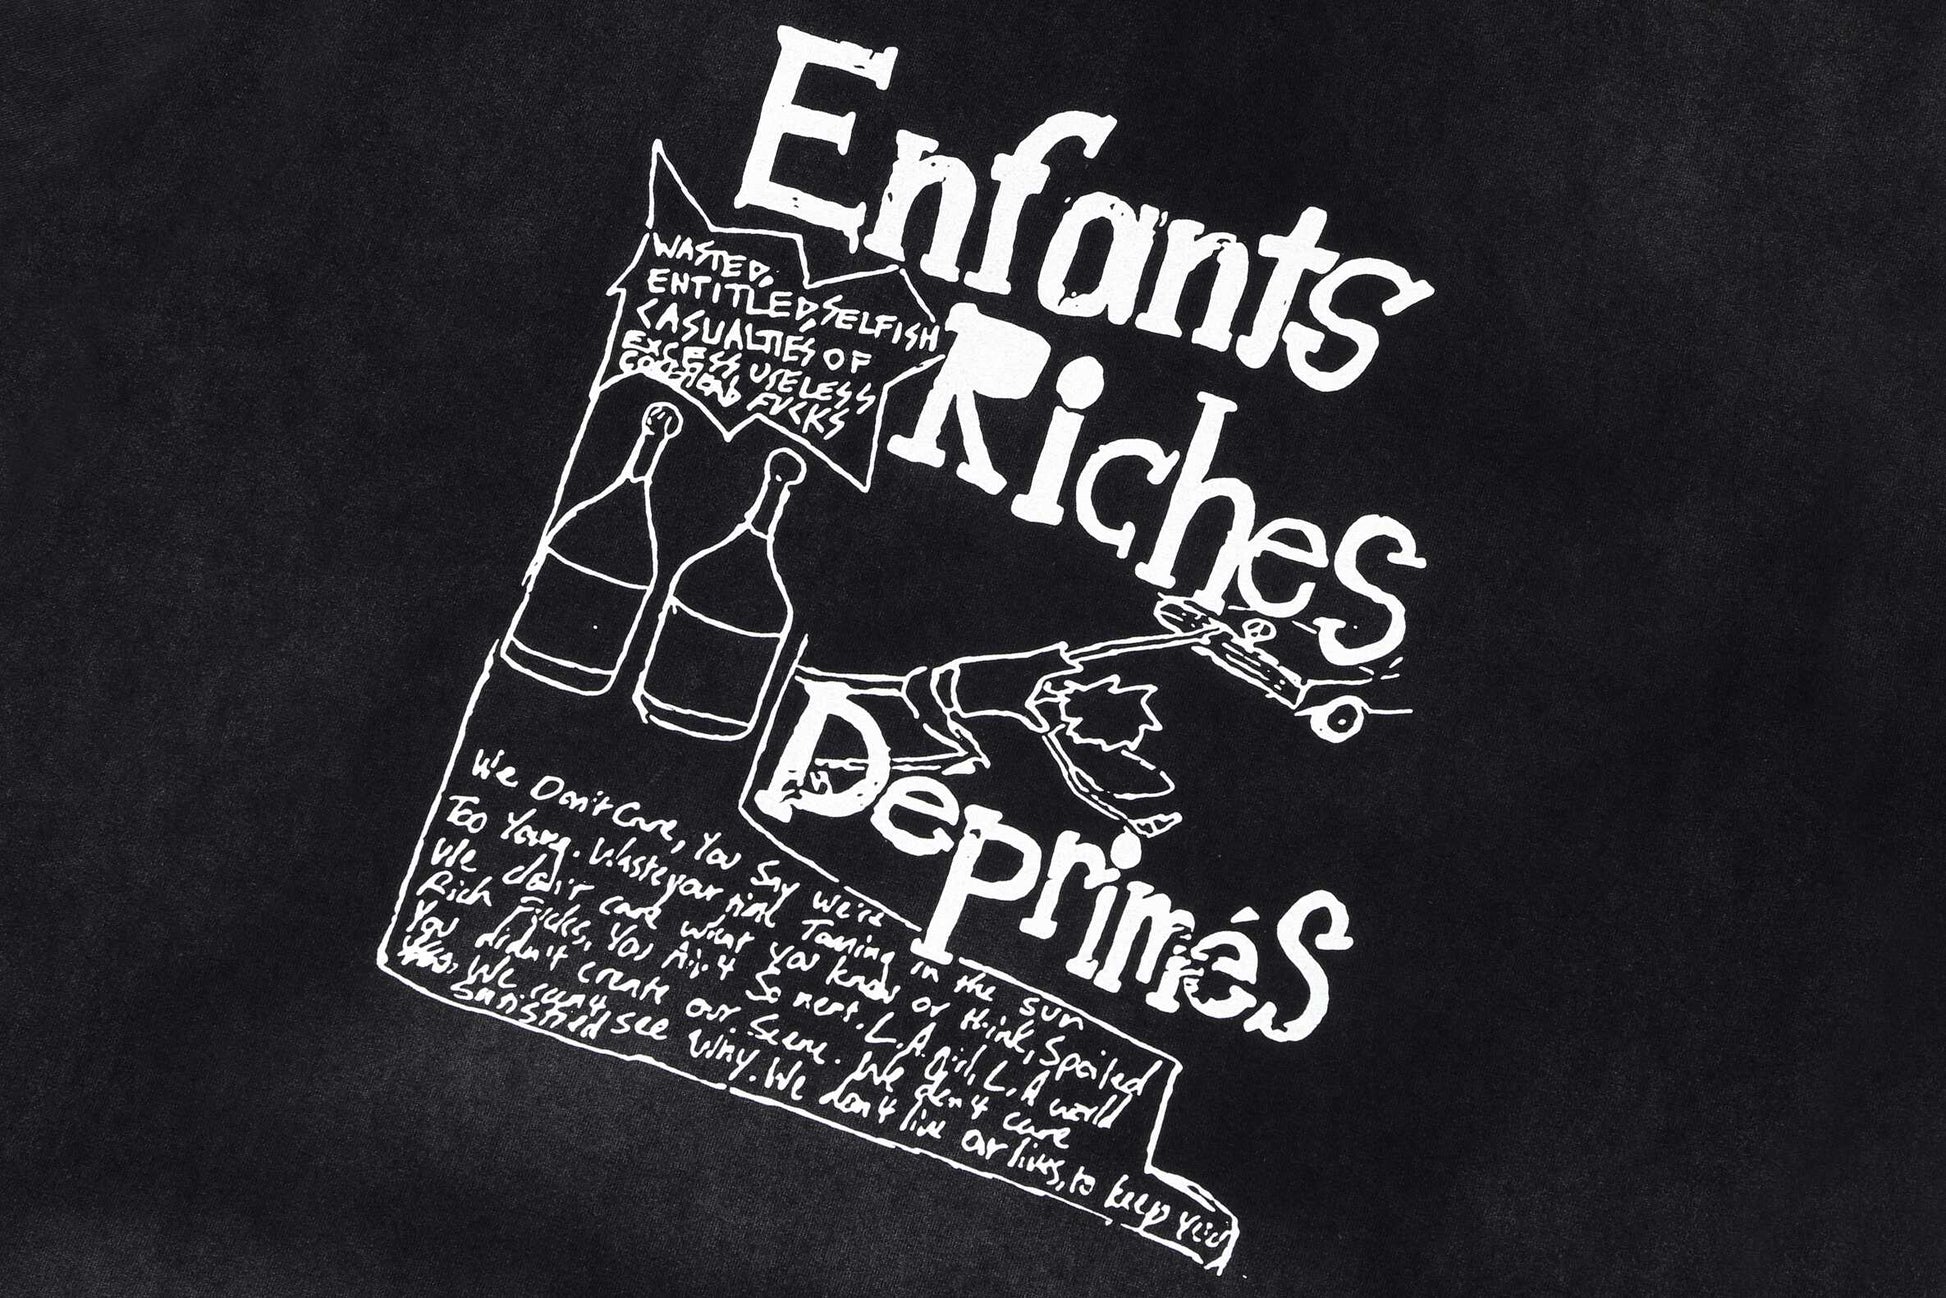 Enfants
Riches
Déprimés
WASTED,
ENTITLED, SELFISH
CASUALTIES OF
EXCESS, USELESS
FUCKS
We Don't Care, You Say we're
Too Young. Waste your time Tanning in the sun
We don't care what you know or think, Spoiled
Rich Fucks, You Ain't So neat. L.A girl, L.A world
You didn't create our Scene. We don't care
We can't see why. We don't live our lives, to keep you
Satisfied